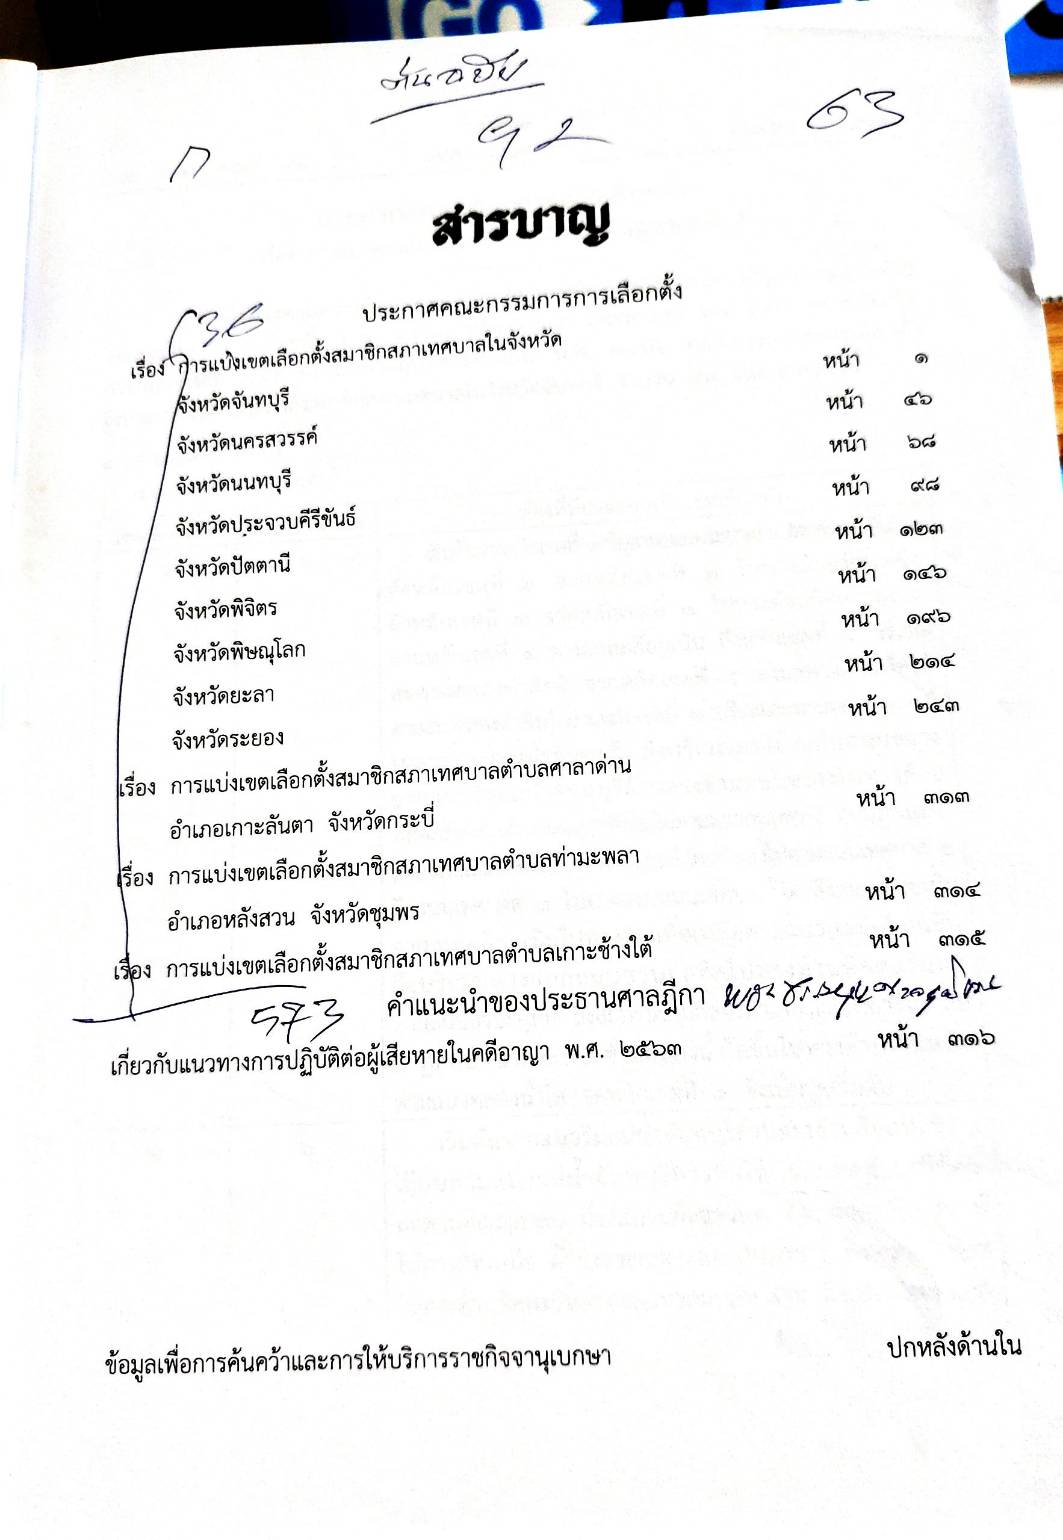 GO
ต้นฉบับ
ก ๑๒ 63
สารบาญ
ประกาศคณะกรรมการการเลือกตั้ง
136
เรื่อง การแบ่งเขตเลือกตั้งสมาชิกสภาเทศบาลในจังหวัด
จังหวัดจันทบุรี หน้า ๑
จังหวัดนครสวรรค์ หน้า ๔๖
จังหวัดนนทบุรี หน้า ๖๘
จังหวัดประจวบคีรีขันธ์ หน้า ๙๘
จังหวัดปัตตานี หน้า ๑๒๓
จังหวัดพิจิตร หน้า ๑๔๖
จังหวัดพิษณุโลก หน้า ๑๙๖
จังหวัดยะลา หน้า ๒๑๔
จังหวัดระยอง หน้า ๒๔๓
เรื่อง การแบ่งเขตเลือกตั้งสมาชิกสภาเทศบาลตำบลศาลาด่าน
อำเภอเกาะลันตา จังหวัดกระบี่ หน้า ๓๑๓
เรื่อง การแบ่งเขตเลือกตั้งสมาชิกสภาเทศบาลตำบลท่ามะพลา
อำเภอหลังสวน จังหวัดชุมพร หน้า ๓๑๔
เรื่อง การแบ่งเขตเลือกตั้งสมาชิกสภาเทศบาลตำบลเกาะช้างใต้ หน้า ๓๑๕
573 คำแนะนำของประธานศาลฎีกา
เกี่ยวกับแนวทางการปฏิบัติต่อผู้เสียหายในคดีอาญา พ.ศ. ๒๕๖๓ หน้า ๓๑๖
ข้อมูลเพื่อการค้นคว้าและการให้บริการราชกิจจานุเบกษา ปกหลังด้านใน